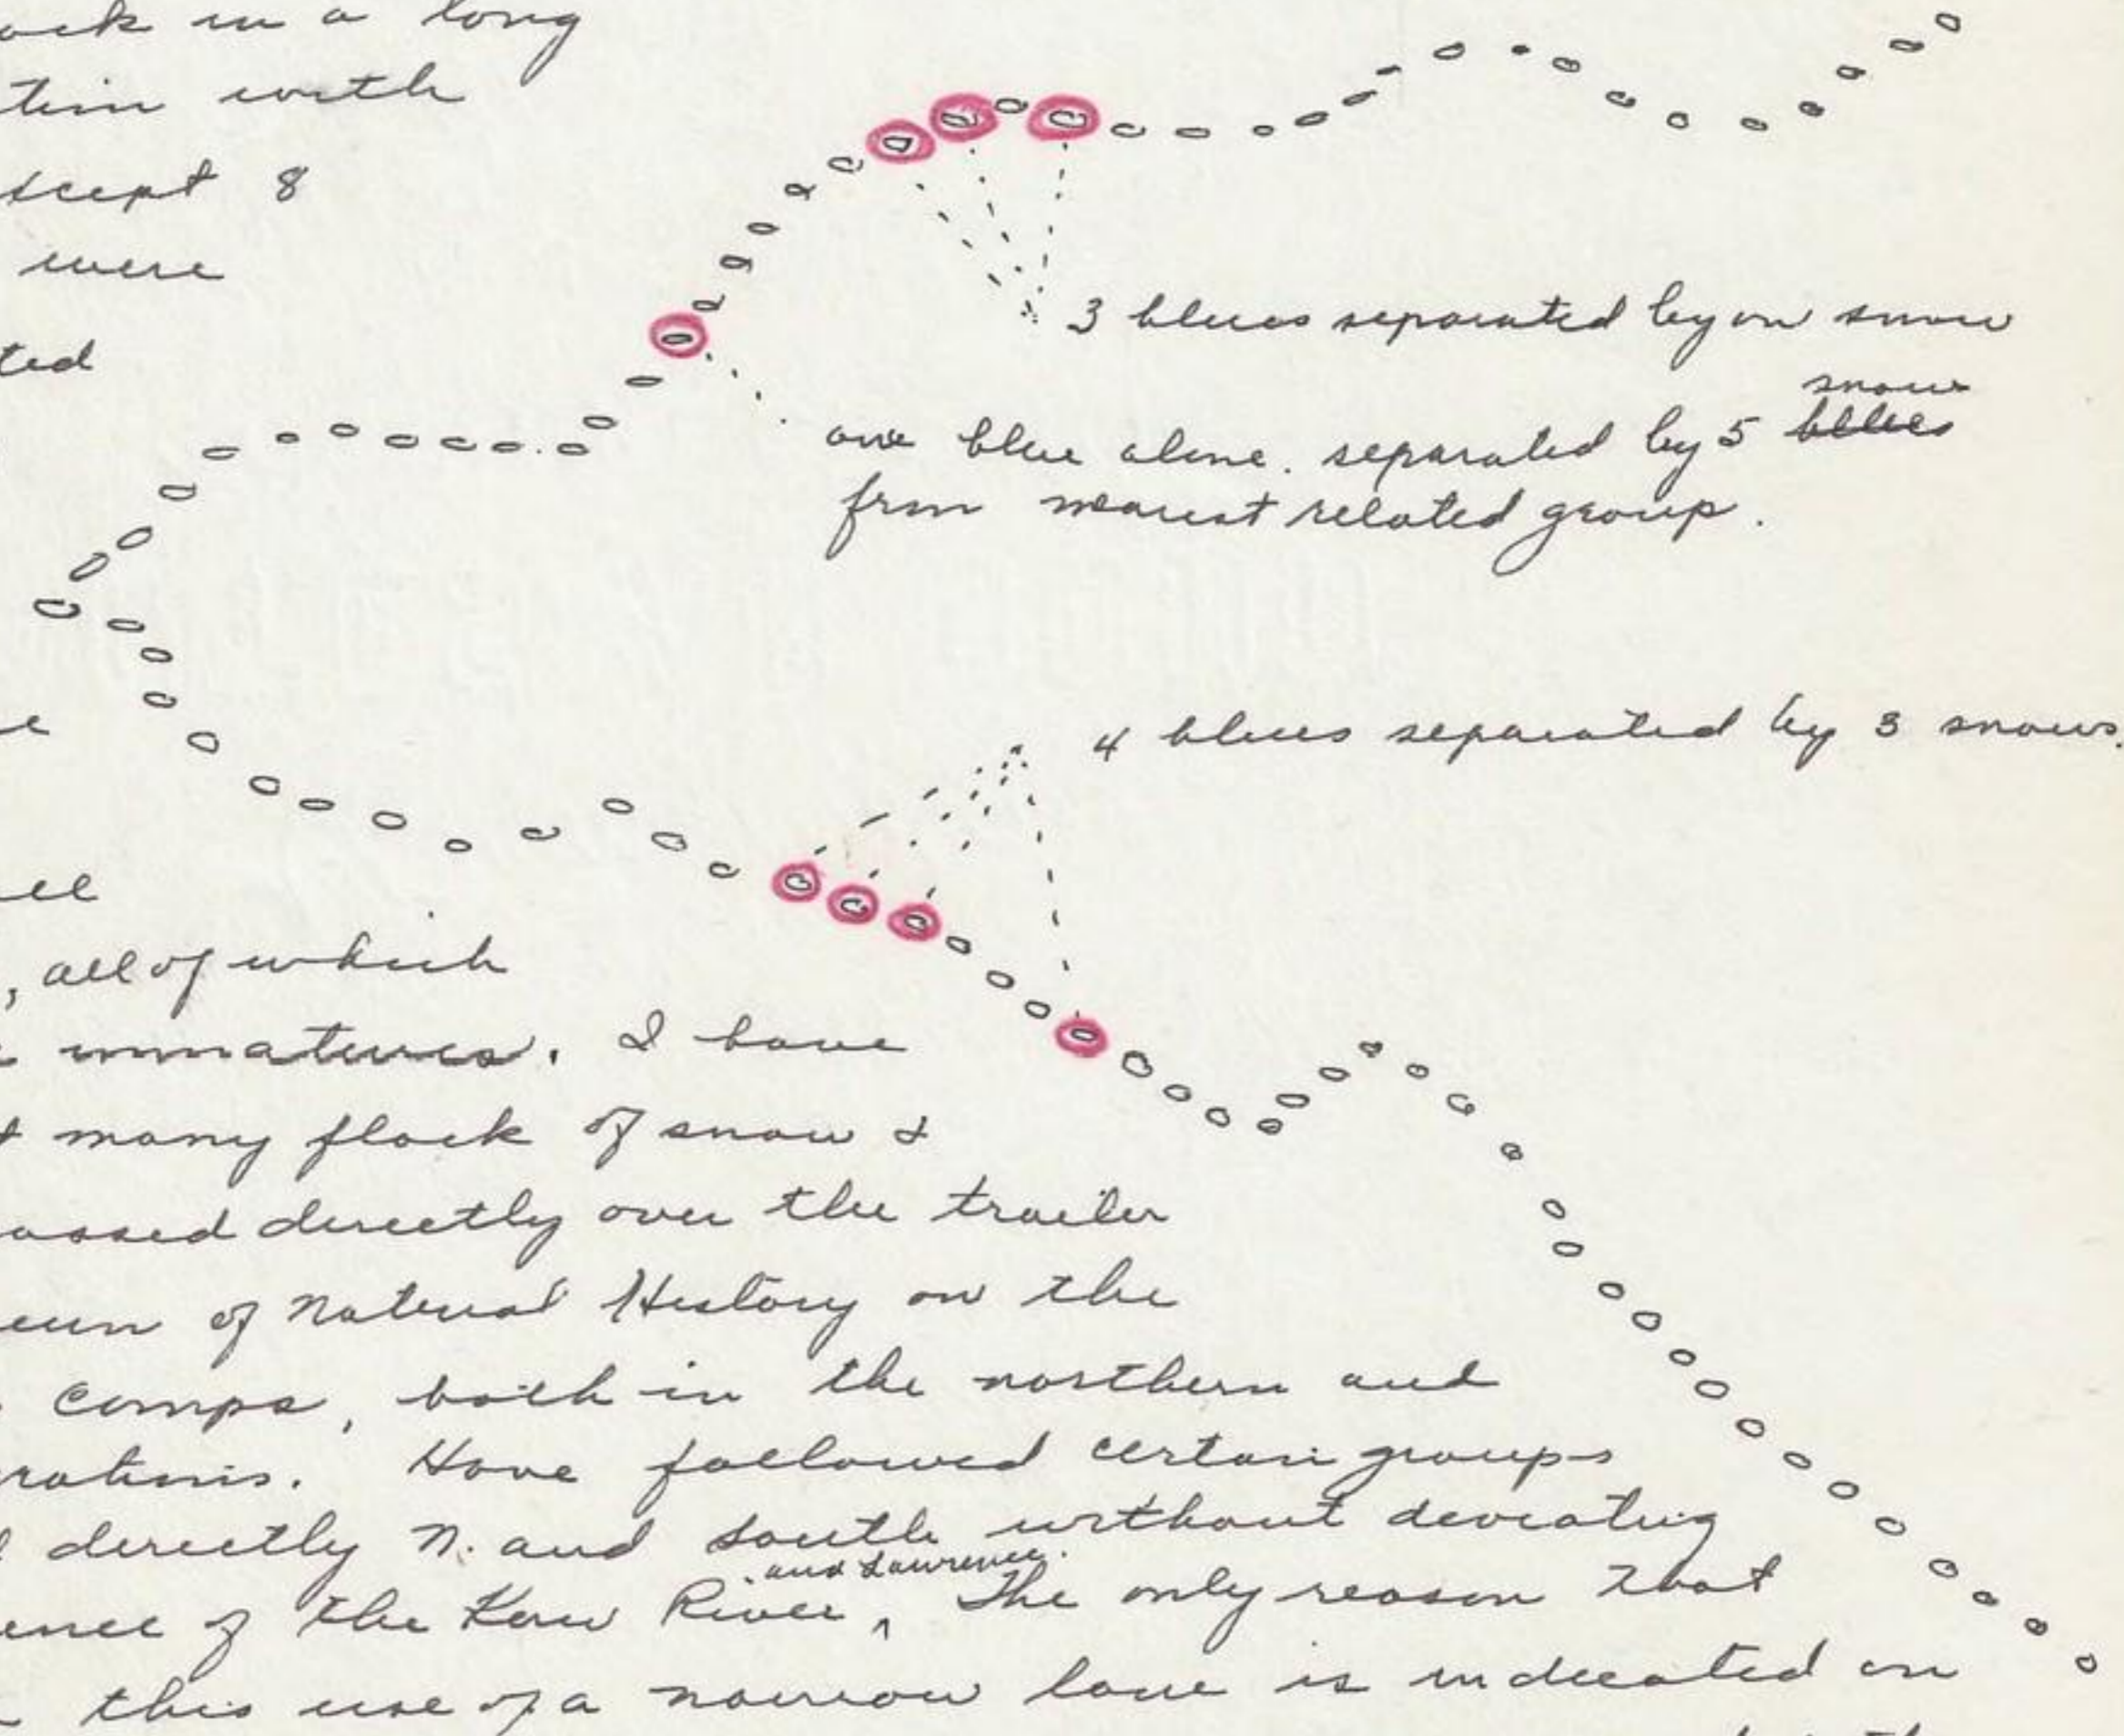 ack in a long
tion with
xcept 8
were
ted
3 blues separated by on snow
snow
one blue alone. separated by 5 blues
from nearest related group.
4 blues separated by 3 snows.
all
, all of which
immatures. I have
many flock of snow &
assed directly over the trailer
eum of Natural History on the
comps, both in the northern and
rations. Have followed certain groups
directly N. and south without deviating
and Lawrence.
ence of the Kaw River, The only reason that
this use of a narrow lane is indicated on